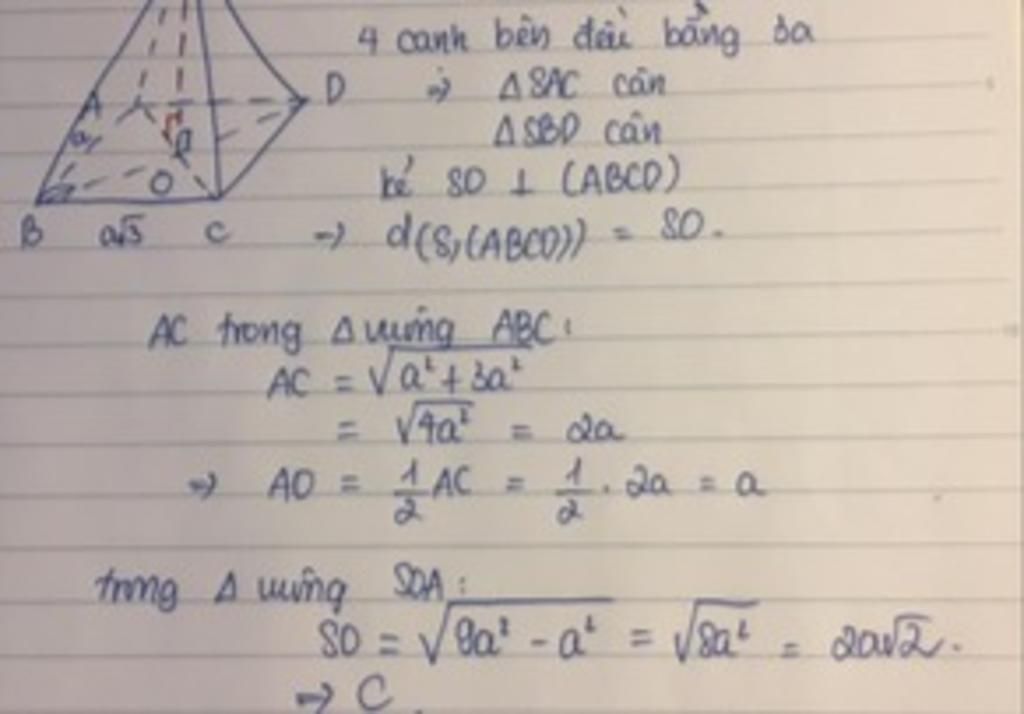 4 cạnh bên đều bằng 3a
A
D
⇒ ΔSAC cân
a
ΔSBD cân
kẻ SO ⊥ (ABCD)
O
B a√3 C
⇒ d(S,(ABCD)) = SO.
AC trong Δ vuông ABC:
AC = √(a² + 3a²)
= √(4a²) = 2a
⇒ AO = 1/2 AC = 1/2 . 2a = a
trong Δ vuông SOA:
SO = √(9a² - a²) = √(8a²) = 2a√2.
⇒ C.